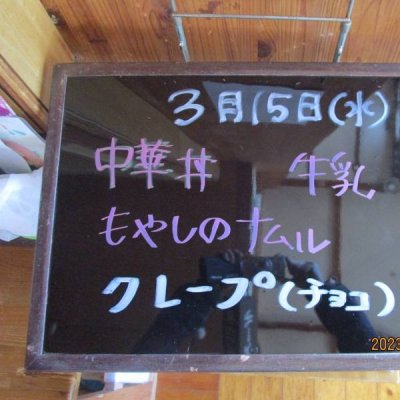 3月15日(水)
中華丼 牛乳
もやしのナムル
クレープ(チョコ)
2023